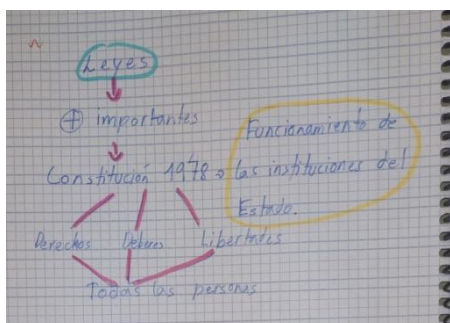 Leyes
⊕ importantes
Constitución 1978 →
Funcionamiento de
las instituciones del
Estado.
Derechos Deberes Libertades
Todas las personas